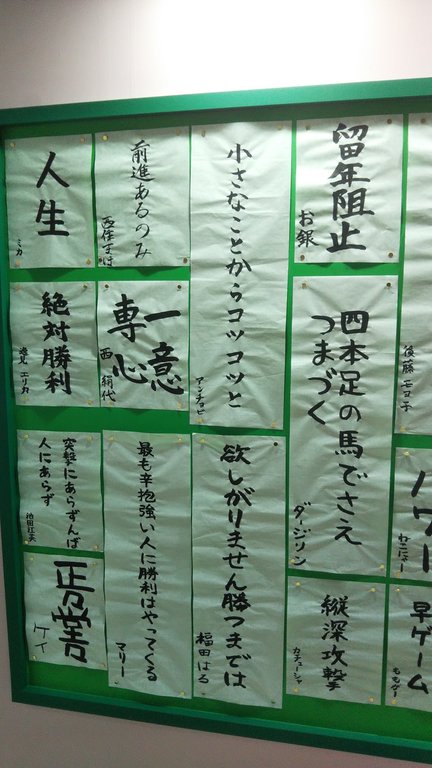 後藤 モヨ子
パワー
ねこにゃー
早ゲーム
ももがー
留年阻止
お銀
四本足の馬でさえ
つまづく
ダージリン
縦深攻撃
カチューシャ
小さなことからコツコツと
アンチョビ
欲しがりません勝つまでは
福田はる
前進あるのみ
西住まほ
一意
専心
西 絹代
最も辛抱強い人に勝利はやってくる
マリー
人生
ミカ
絶対勝利
逸見 エリカ
突撃にあらずんば
人にあらず
ケイ